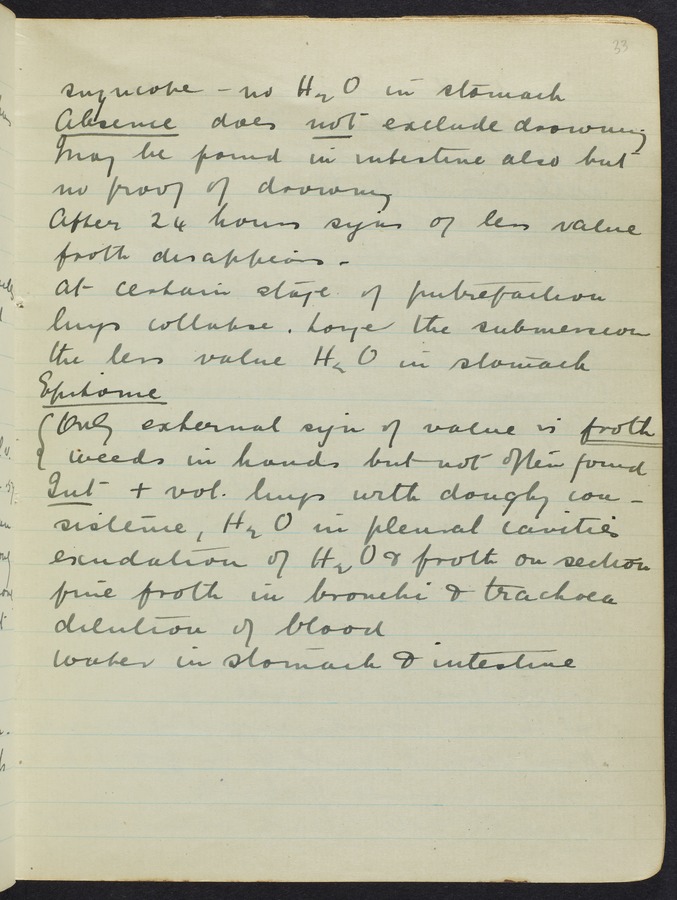 33
syncope - no H2O in stomach
Absence does not exclude drowning
May be found in intestine also but
no proof of drowning
After 24 hours signs of less value
froth disappears.
At certain stage of putrefaction
lungs collapse. Longer the submersion
the less value H2O in stomach
Epitome
{ Only external sign of value is froth
{ weeds in hands but not often found
Int + vol. lungs with doughy con-
sistence, H2O in pleural cavities
exudation of H2O & froth on section
fine froth in bronchi & trachea
dilution of blood
water in stomach & intestine